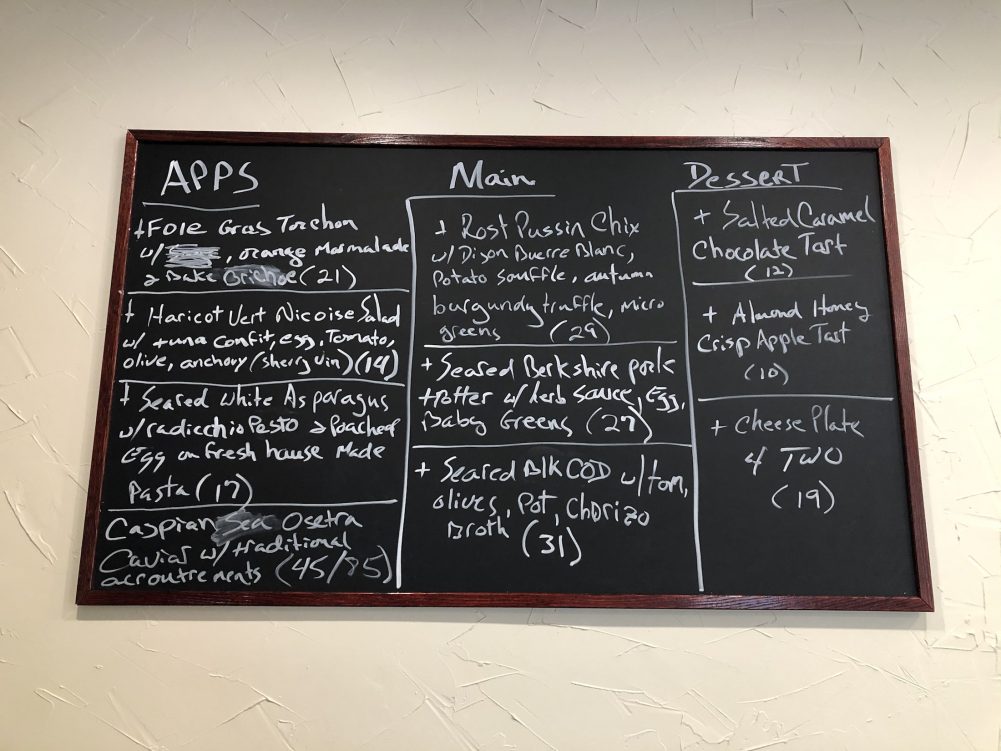 APPS
+ Foie Gras Torchon
w/ , orange Marmalade
& Bake Brichoe (21)
+ Haricot Vert Nicoise Salad
w/ tuna confit, egg, Tomato,
olive, anchovy (sherry vin) (14)
+ Seared White Asparagus
w/ radicchio Pasto & Poached
Egg on Fresh house Made
Pasta (17)
Caspian Sea Osetra
Caviar w/ traditional
acroutrements (45/85)
Main
+ Rost Pussin Chix
w/ Dijon Buerre Blanc,
Potato souffle, autumn
burgundy truffle, micro
greens (29)
+ Seared Berkshire pork
w/ herb sauce, Egg,
Baby Greens (27)
+ Seared Blk COD w/ tom,
olives, Pot, Chorizo
Broth (31)
Dessert
+ Salted Caramel
Chocolate Tart
(12)
+ Almond Honey
Crisp Apple Tart
(10)
+ Cheese Plate
4 TWO
(19)